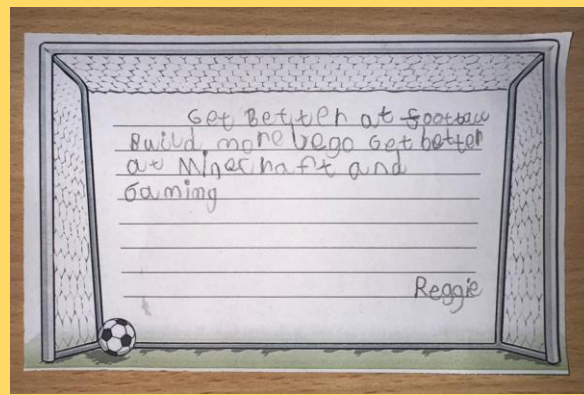 Get Better at football
Build more lego Get better
at Minecraft and
Gaming
Reggie